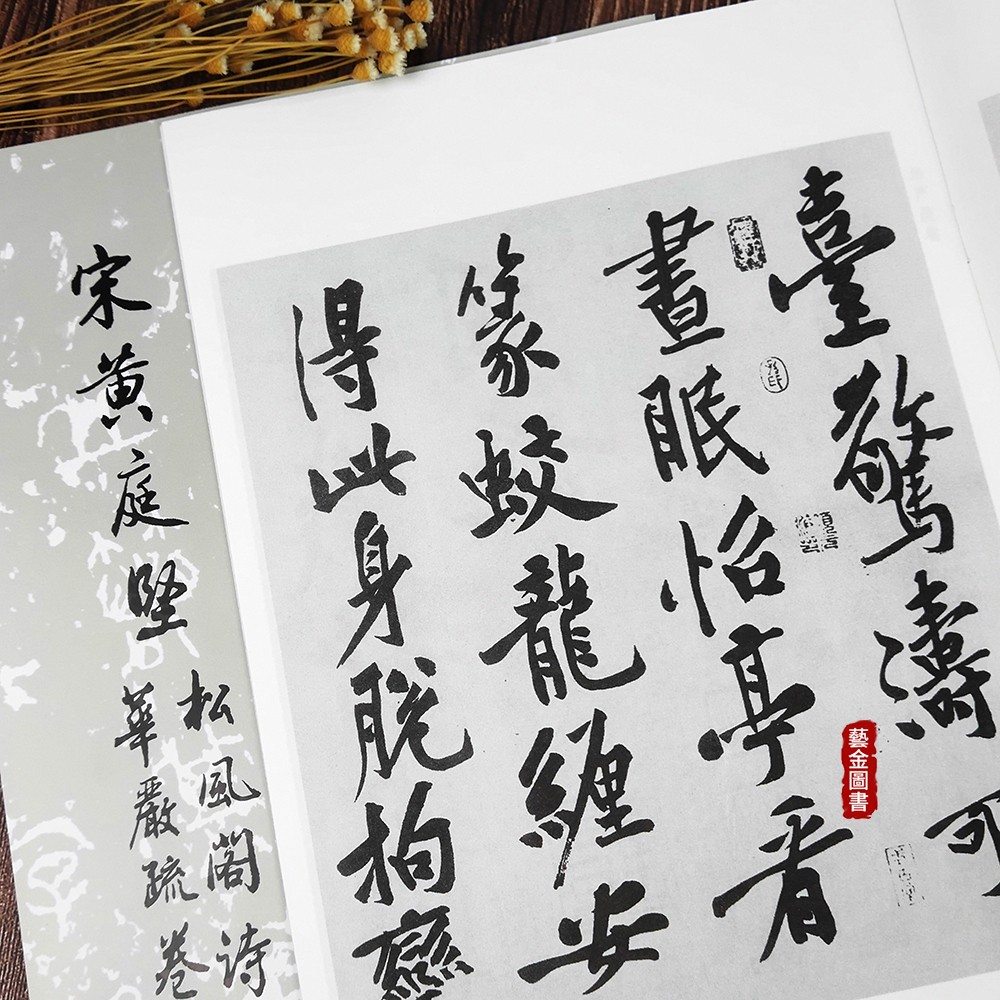 宋黄庭堅
松風閣詩
華嚴疏卷
臺驚濤可
晝眠怡亭看
篆蛟龍纏安
得此身脫拘攣
藝金圖書